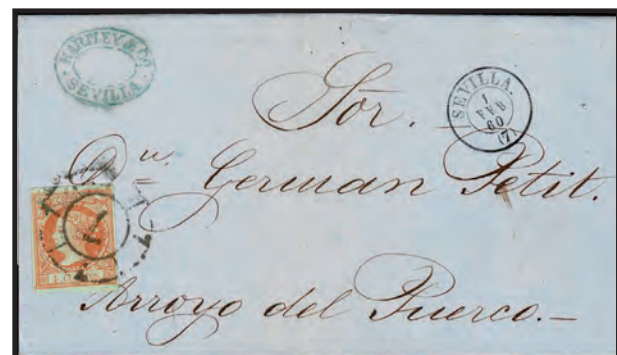 HARTLEY & Cº
SEVILLA
SEVILLA.
1
FEB
60
(7)
Sõr.
Dn. German Petit.
1
Arroyo del Puerco.—